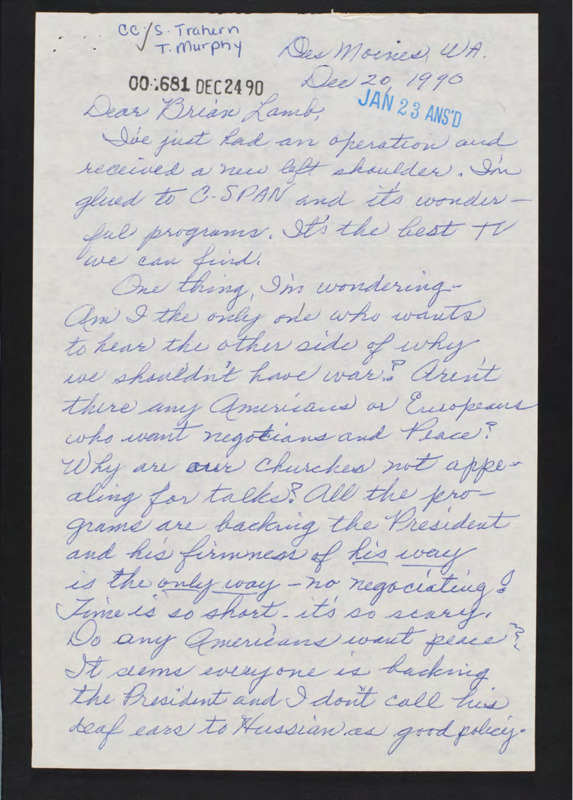 CC/S. Trahern
T. Murphy
Des Moines, WA.
00:681 DEC24 90
Dec 20, 1990
JAN 23 ANS'D
Dear Brian Lamb,
I've just had an operation and
received a new left shoulder. I'm
glued to C-SPAN and it's wonder-
ful programs. It's the best TV
we can find.
One thing, I'm wondering-
Am I the only one who wants
to hear the other side of why
we shouldn't have war? Aren't
there any Americans or Europeans
who want negotians and Peace?
Why are our churches not appe-
aling for talks? All the pro-
grams are backing the President
and his firmness of his way
is the only way - no negociating!
Time is so short - it's so scary.
Do any Americans want peace?
It sems everyone is backing
the President and I don't call his
deaf ears to Hussian as good policy.